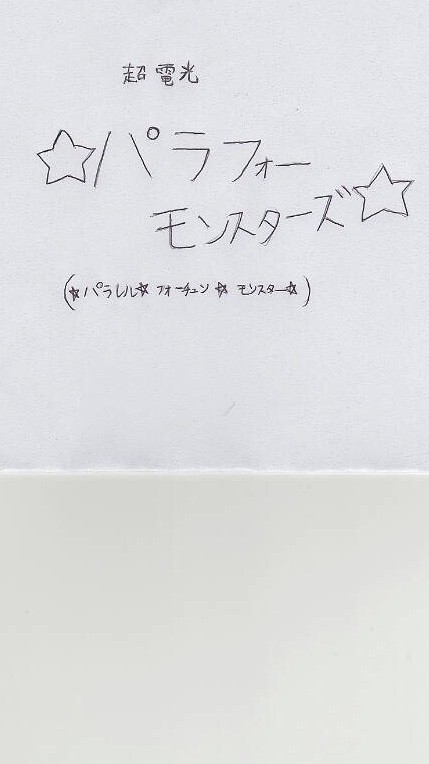 超電光
☆パラフォー
モンスターズ☆
(☆パラレル☆フォーチュン☆モンスター☆)